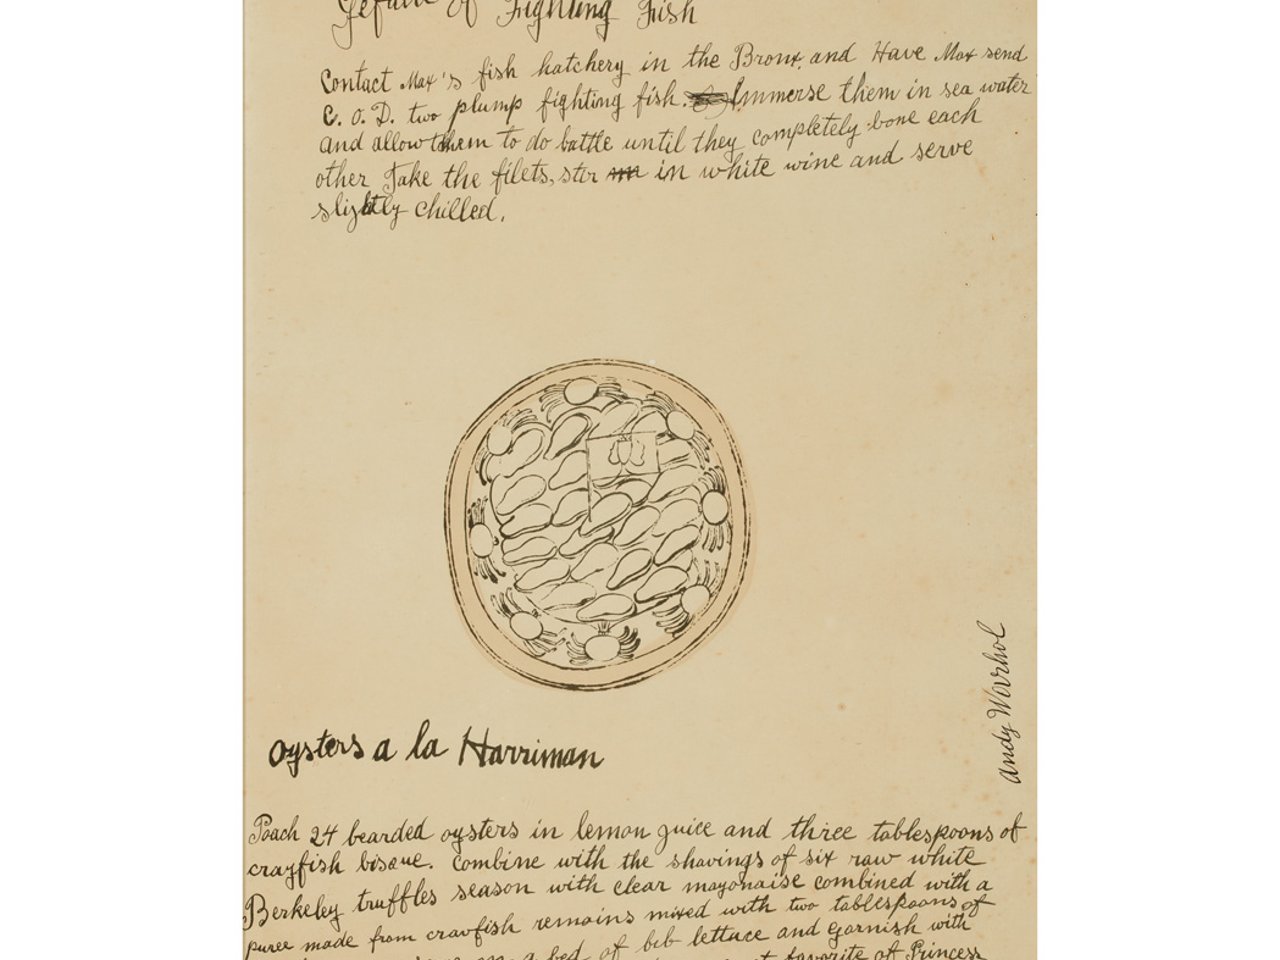 Gefulte of Fighting Fish
Contact Max's fish hatchery in the Bronx, and Have Max send
C. O. D. two plump fighting fish. Immerse them in sea water
and allow them to do battle until they completely bone each
other Take the filets, stir in white wine and serve
slightly chilled.
Andy Warhol
Oysters a la Harriman
Poach 24 bearded oysters in lemon juice and three tablespoons of
crayfish bisque. Combine with the shavings of six raw white
Berkeley truffles season with clear mayonaise combined with a
puree made from crawfish remains mixed with two tablespoons of
on a bed of bib lettuce and garnish with
favorite of Princess